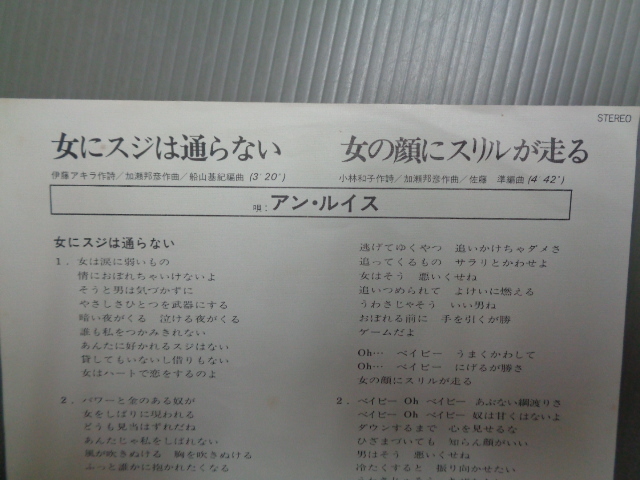 STEREO
女にスジは通らない
伊藤アキラ作詩/加瀬邦彦作曲/船山基紀編曲 (3′20″)
女の顔にスリルが走る
小林和子作詩/加瀬邦彦作曲/佐藤　準編曲 (4′42″)
唄:アン・ルイス
女にスジは通らない
1. 女は涙に弱いもの
情におぼれちゃいけないよ
そうと男は気づかずに
やさしさひとつを武器にする
暗い夜がくる　泣ける夜がくる
誰も私をつかみきれない
あんたに好かれるスジはない
貸してもいないし借りもない
女はハートで恋をするのよ
2. パワーと金のある奴が
女をしばりに現われる
どうも見当はずれだね
あんたじゃ私をしばれない
風が吹きぬける　胸を吹きぬける
ふっと誰かに抱かれたくなる
逃げてゆくやつ　追いかけちゃダメさ
追ってくるもの　サラリとかわせよ
女はそう　悪いくせね
追いつめられて　よけいに燃える
うわさじゃそう　いい男ね
おぼれる前に　手を引くが勝
ゲームだよ
Oh…　ベイビー　うまくかわして
Oh…　ベイビー　にげるが勝さ
女の顔にスリルが走る
2. ベイビー Oh ベイビー　あぶない綱渡りさ
ベイビー Oh ベイビー　奴は甘くはないよ
ダウンするまで　心を見せるな
ひざまづいても　知らん顔がいい
男はそう　悪いくせね
冷たくすると　振り向かせたい